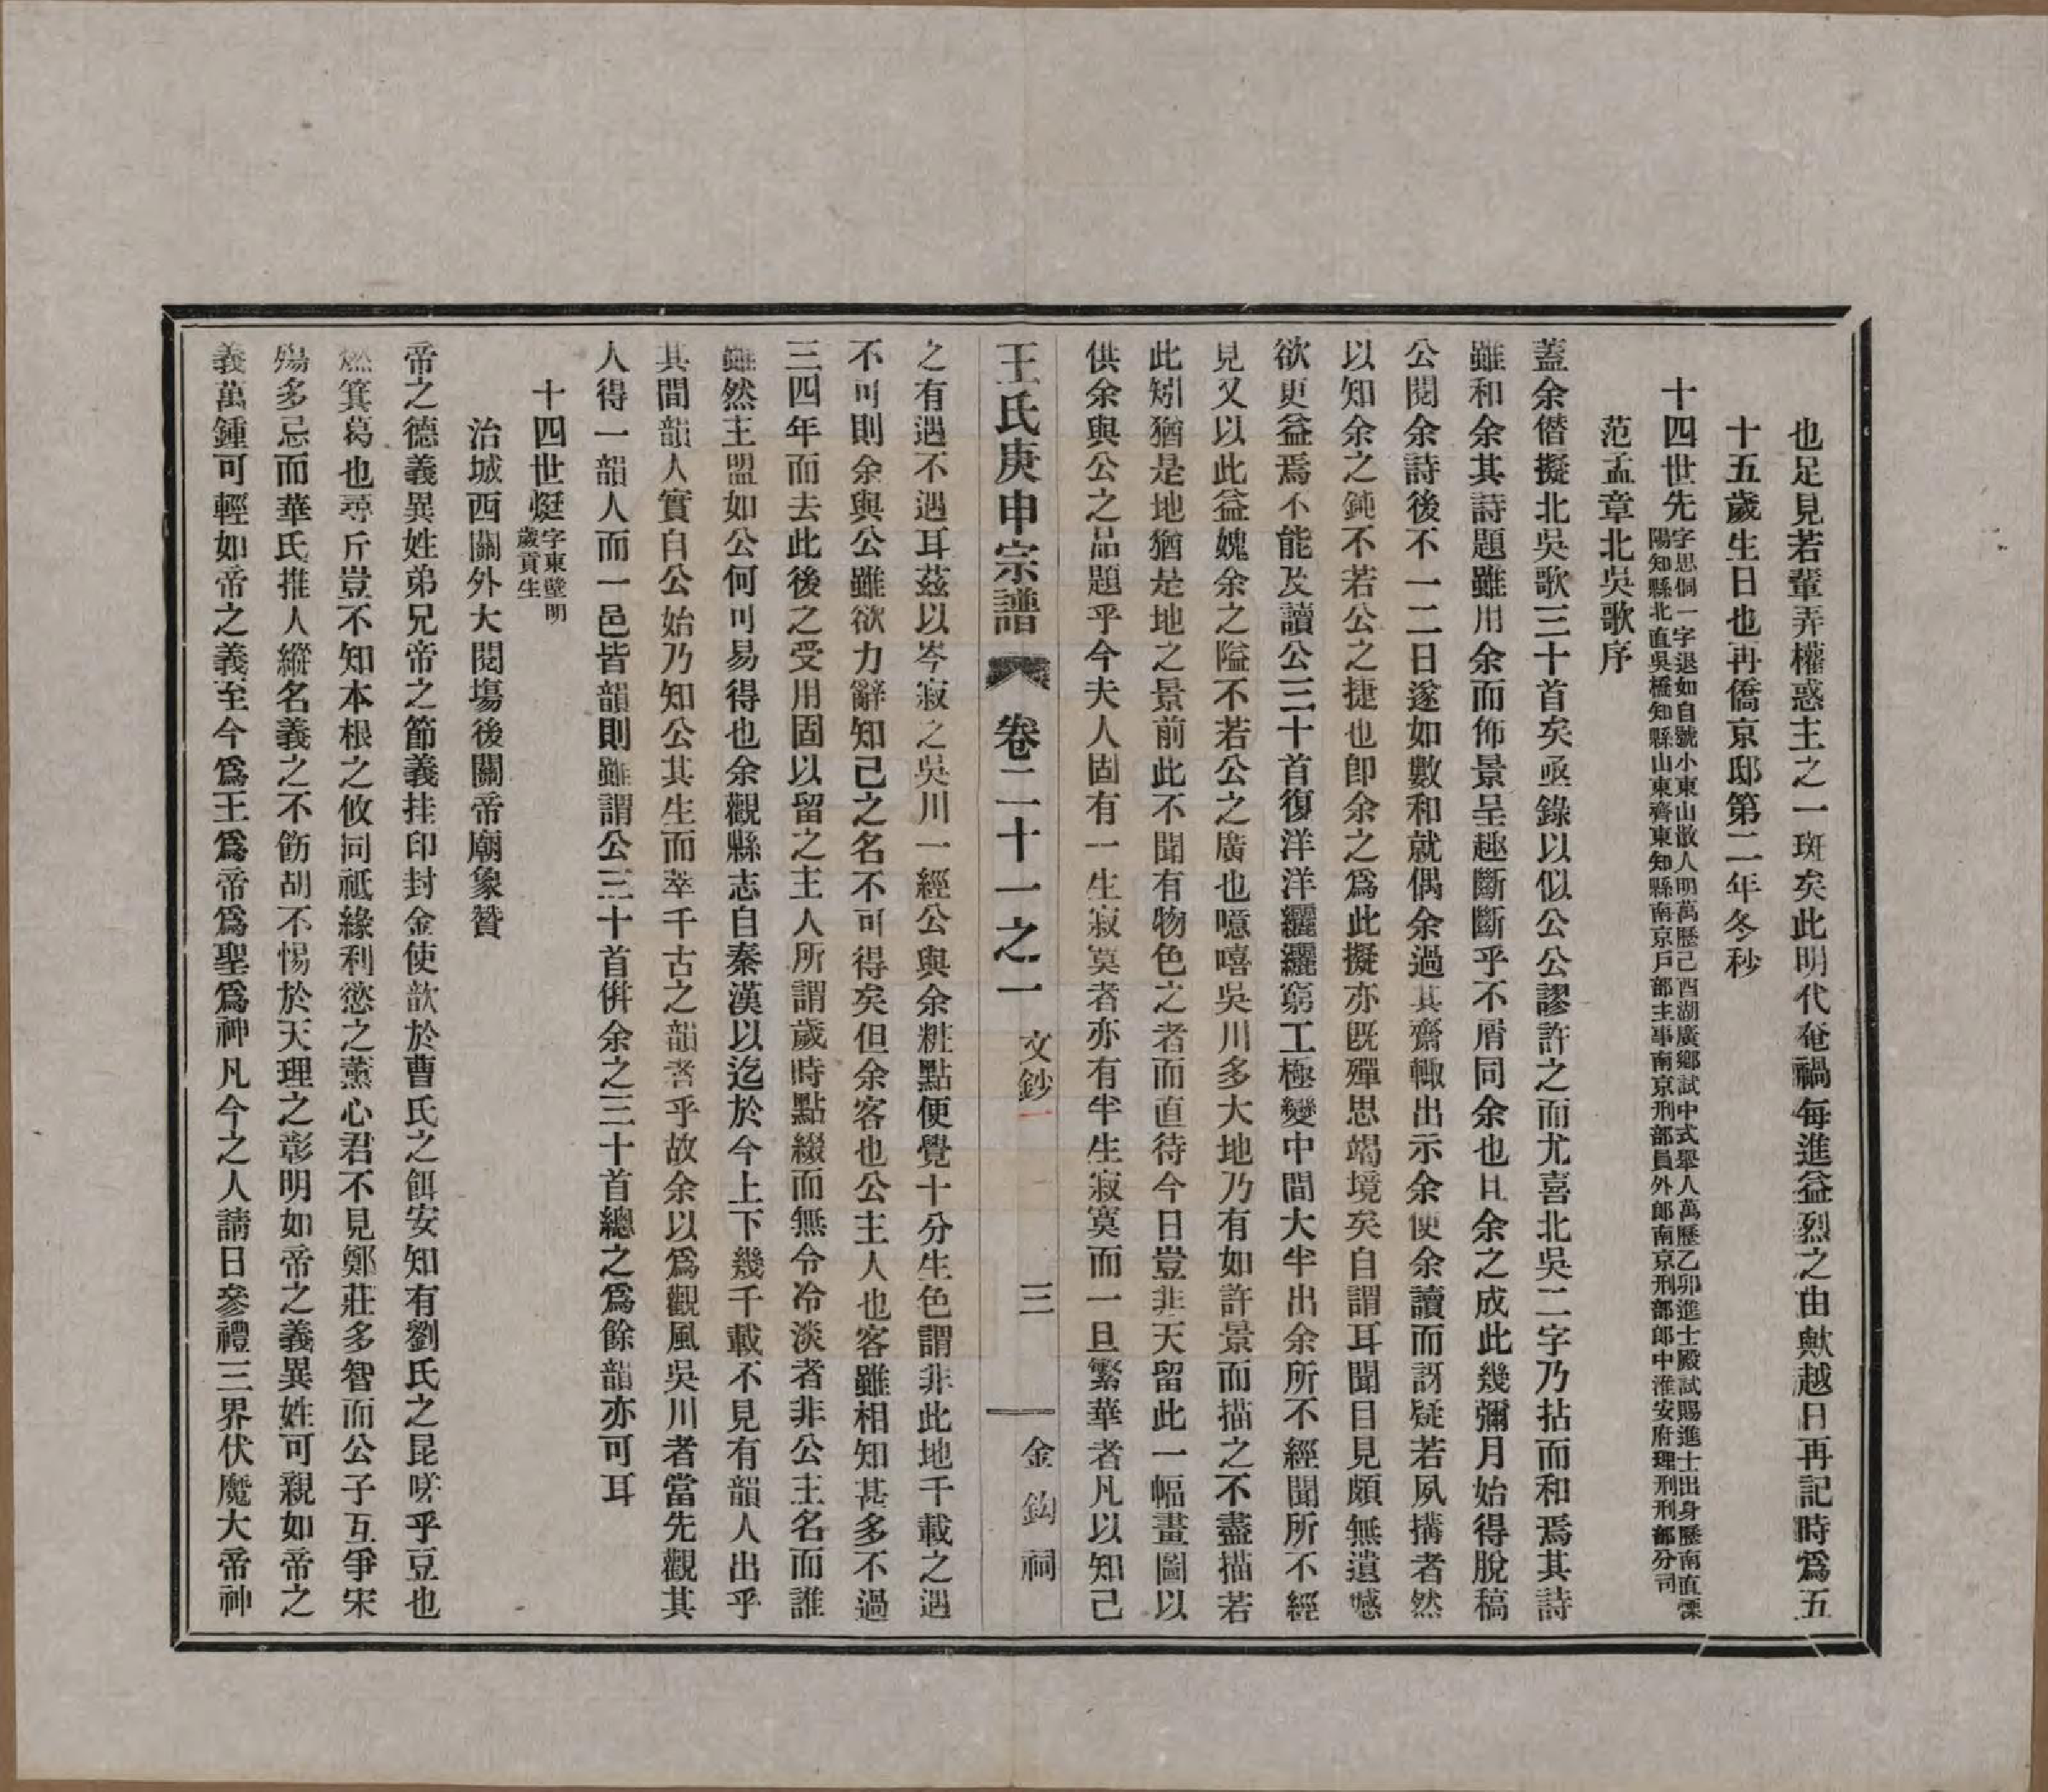 也足見若輩弄權惑主之一斑矣此明代奄禍每進益烈之由歟越日再記時爲五
十五歲生日也再僑京邸第二年冬秒
十四世先
字思侗一字退如自號小東山散人明萬歷己酉湖廣鄉試中式舉人萬歷乙卯進士殿試賜進士出身歷南直溧
陽知縣北直吳橋知縣山東齊東知縣南京戶部主事南京刑部員外郎南京刑部郎中淮安府理刑刑部分司
范孟章北吳歌序
蓋余僭擬北吳歌三十首矣亟錄以似公公謬許之而尤喜北吳二字乃拈而和焉其詩
雖和余其詩題雖用余而佈景呈趣斷斷乎不屑同余也且余之成此幾彌月始得脫稿
公閱余詩後不一二日遂如數和就偶余過其齋輙出示余便余讀而訝疑若夙搆者然
以知余之鈍不若公之捷也卽余之爲此擬亦既殫思竭境矣自謂耳聞目見頗無遺憾
欲更益焉不能及讀公三十首復洋洋纚纚窮工極變中間大半出余所不經聞所不經
見又以此益媿余之隘不若公之廣也噫嘻吳川多大地乃有如許景而描之不盡描若
此矧猶是地猶是地之景前此不聞有物色之者而直待今日豈非天留此一幅畫圖以
供余與公之品題乎今夫人固有一生寂寞者亦有半生寂寞而一旦繁華者凡以知己
王氏庚申宗譜 卷二十一之一 文鈔一 三 金鈎祠
之有遇不遇耳茲以岑寂之吳川一經公與余粧點便覺十分生色謂非此地千載之遇
不可則余與公雖欲力辭知己之名不可得矣但余客也公主人也客雖相知甚多不過
三四年而去此後之受用固以留之主人所謂歲時點綴而無令冷淡者非公主名而誰
雖然主盟如公何可易得也余觀縣志自秦漢以迄於今上下幾千載不見有韻人出乎
其間韻人實自公始乃知公其生而萃千古之韻者乎故余以爲觀風吳川者當先觀其
人得一韻人而一邑皆韻則雖謂公三十首倂余之三十首總之爲餘韻亦可耳
十四世艇
字東壁明
歲貢生
治城西關外大閱塲後關帝廟象贊
帝之德義異姓弟兄帝之節義挂印封金使歆於曹氏之餌安知有劉氏之昆嗟乎豆也
燃箕葛也尋斤豈不知本根之攸同祗緣利慾之薰心君不見鄭莊多智而公子互爭宋
殤多忌而華氏推人縱名義之不飭胡不惕於天理之彰明如帝之義異姓可親如帝之
義萬鍾可輕如帝之義至今爲王爲帝爲聖爲神凡今之人請日參禮三界伏魔大帝神